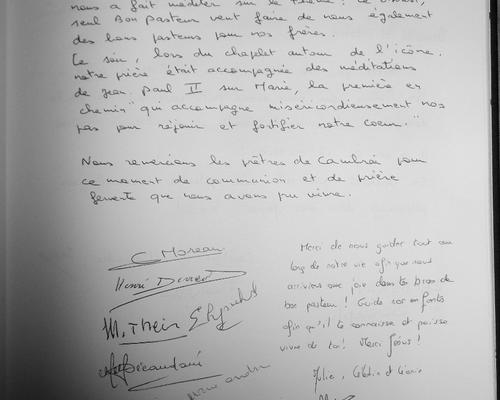 nous a fait méditer sur le
seul Bon Pasteur veut faire de nous également
des bons pasteurs pour nos frères.
Ce soir, lors du chapelet autour de l'icône.
notre prière était accompagnée des méditations
de Jean Paul II sur Marie, la première en
chemin "qui accompagne miséricordieusement nos
pas pour réjouir et fortifier notre coeur."
Nous remercions les prêtres de Cambrai pour
ce moment de communion et de prière
fervente que nous avons pu vivre.
C Moreau
Henri
M. Thérèse
Merci de nous guider tout au
long de notre vie afin que nous
arrivions avec joie dans tes bras de
bon pasteur ! Guide ces enfants
afin qu'il te connaisse et puisse
vivre de toi ! Merci Jésus !
Julie,